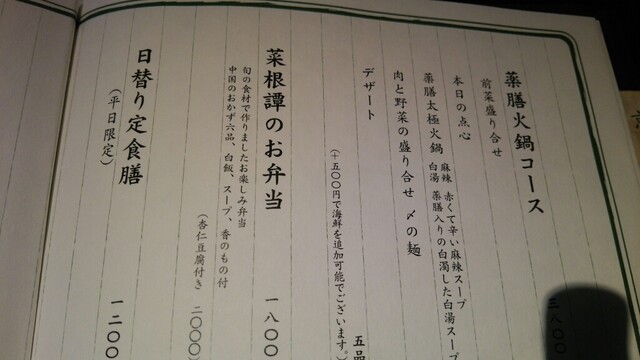 薬膳火鍋コース
前菜盛り合せ
本日の点心
薬膳太極火鍋
麻辣 赤くて辛い麻辣スープ
白湯 薬膳入りの白濁した白湯スープ
肉と野菜の盛り合せ 〆の麺
デザート
五品
(+五〇〇円で海鮮を追加可能でございます。)
菜根譚のお弁当
一八〇〇
旬の食材で作りましたお楽しみ弁当
中国のおかず六品、白飯、スープ、香のもの付
(杏仁豆腐付き 二〇〇〇)
日替り定食膳
一二〇〇
(平日限定)